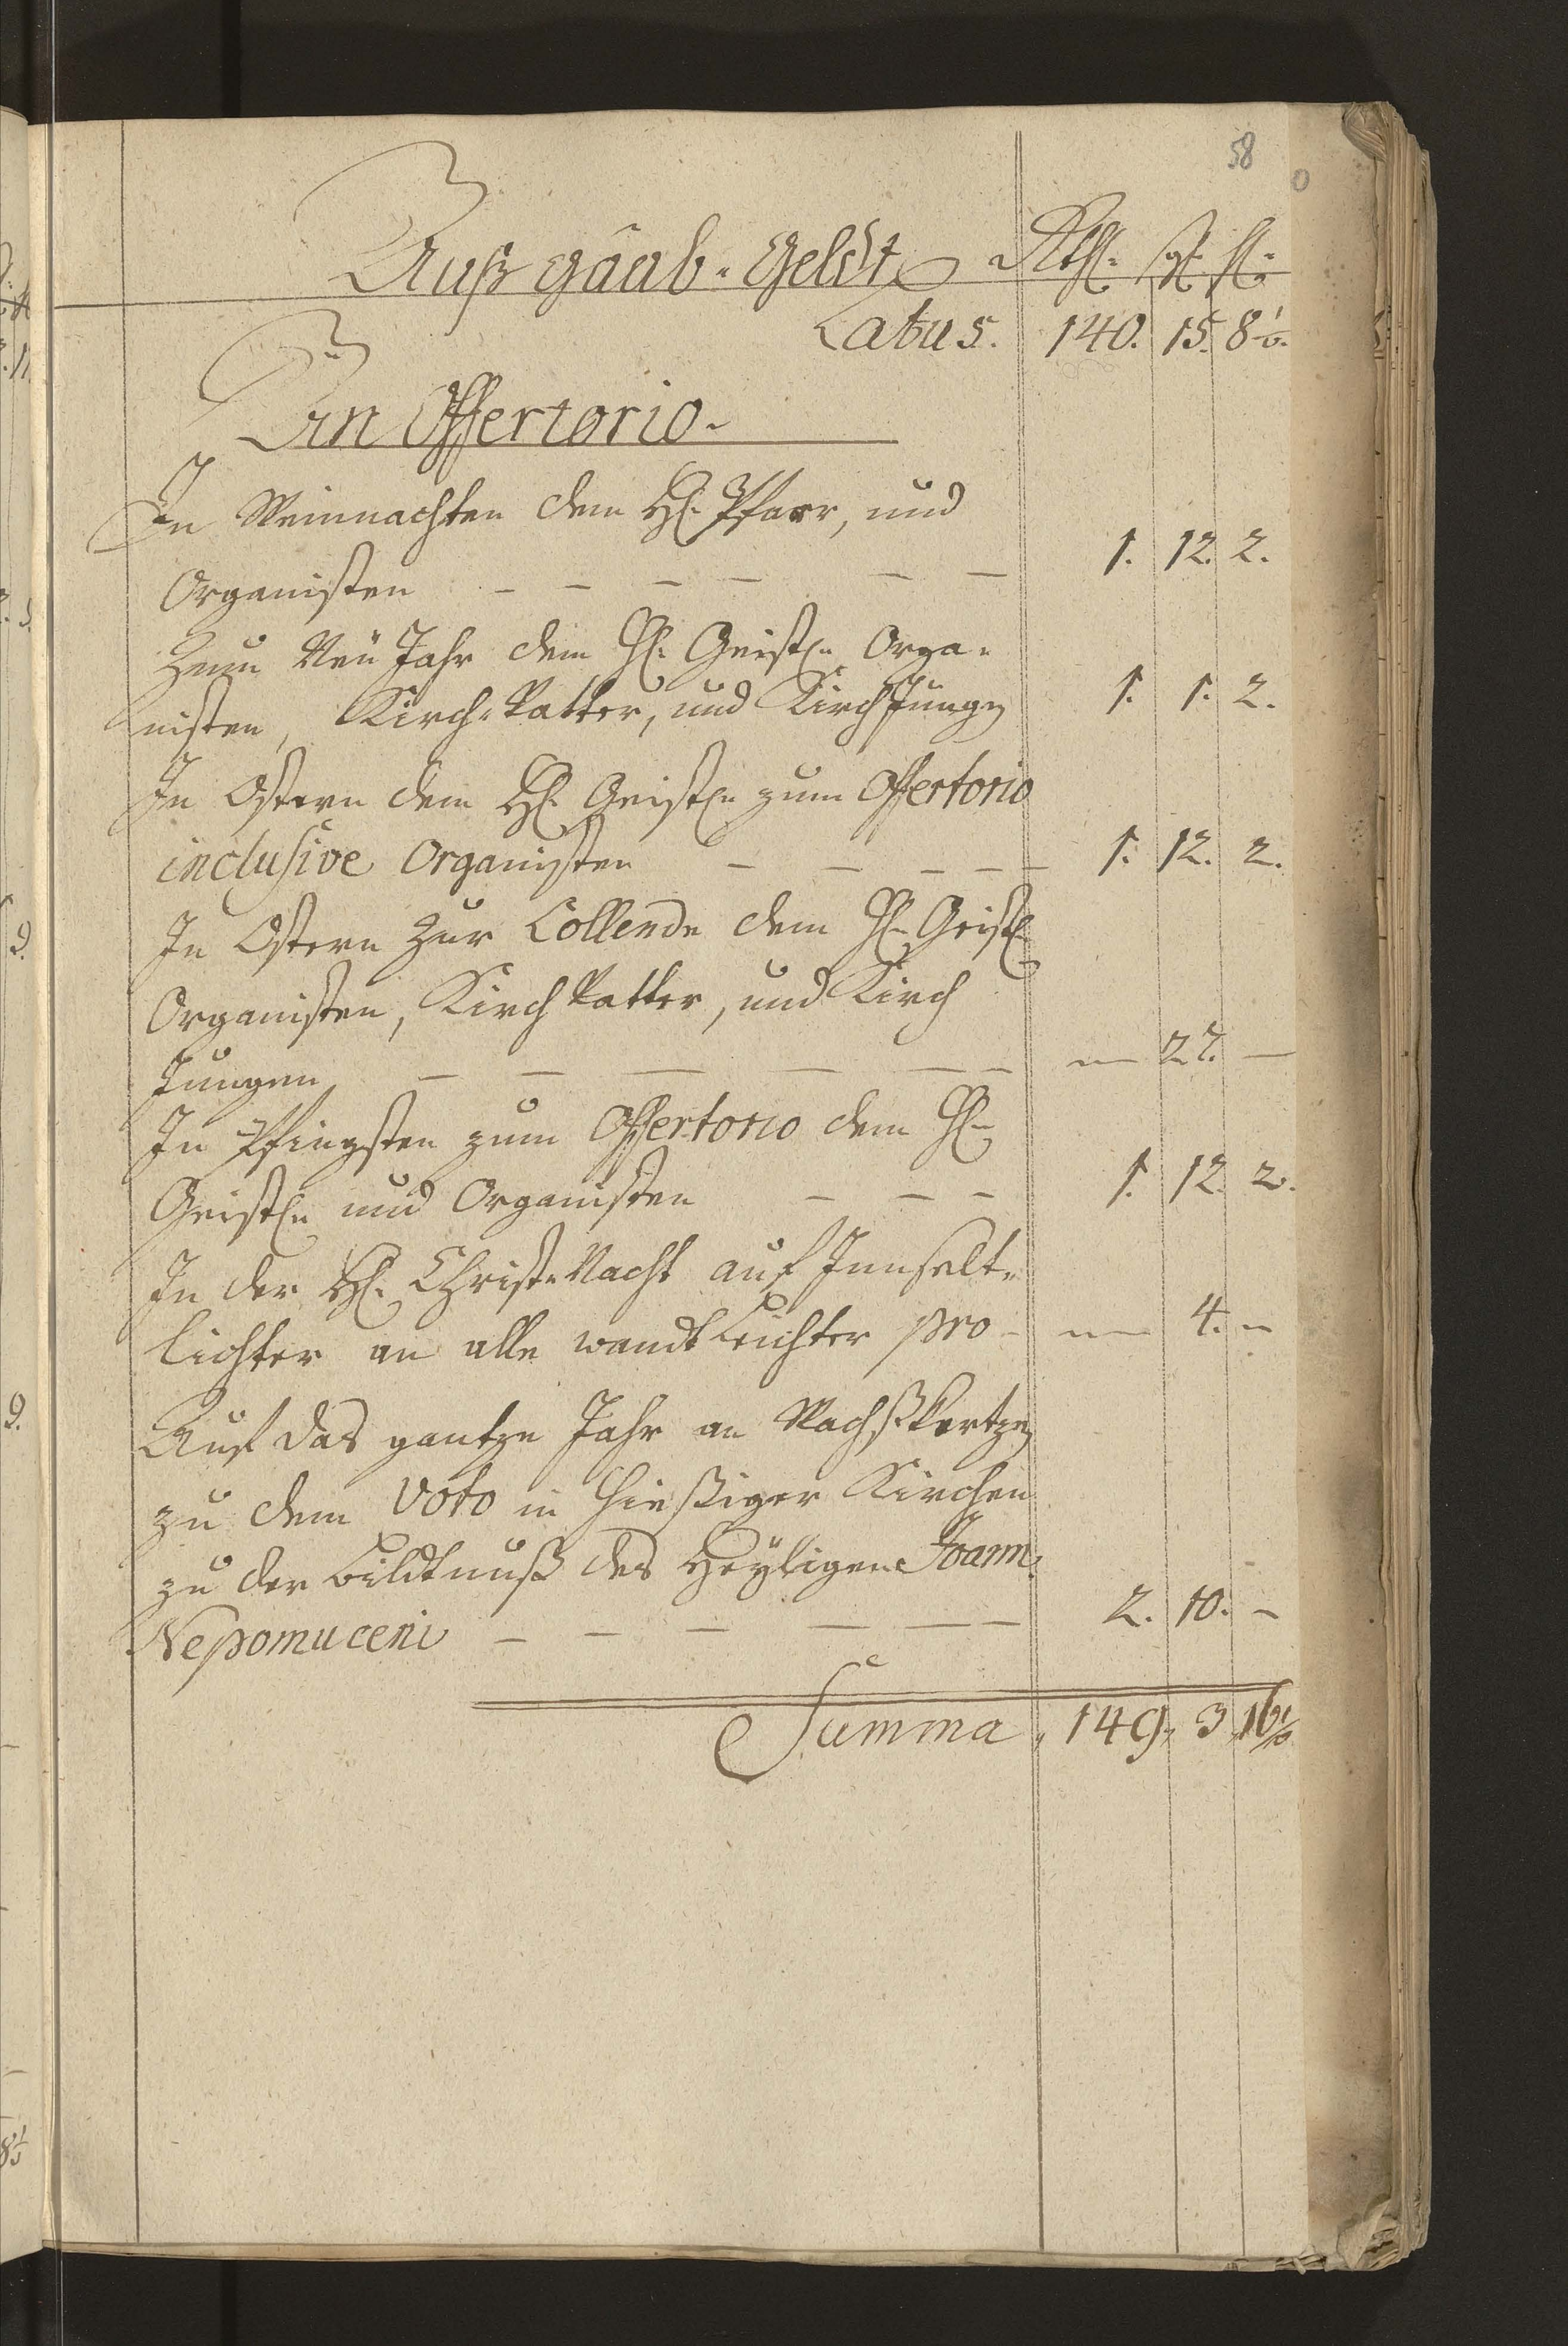 58
Außgaab-Geldt Rthl. sgl. hl.
Latus. 140. 15. 8 1/2.
An Offertorio.
In Weinnachten dem H. Pfarr, und
Organisten — — — — — — 1. 12. 2.
Zum Neü Jahr dem H. Geistl. Orga-
nisten, Kirch-Vatter, und Kirch Jungen 1. 1. 2.
In Ostern dem H. Geistl. zum Offertorio
inclusive Organisten — — — — — 1. 12. 2.
In Ostern Zur Collende dem H. Geistl.
Organisten, Kirch Vatter, und Kirch
Jungen — — — — — — — 27. —
In Pfingsten zum Offertorio dem H.
Geistl. und Organisten — — — 1. 12. 2.
In der H. Christ-Nacht auf Innselt-
lichter an alle wandt Leichter pro — — 4. —
Auf das gantze Jahr an Wachß Kertzen
zu dem Voto in hießiger Kirchen
zu der Bildtnuß des Heyligen Joann.
Nepomuceni — — — — — — 2. 10. —
Summa. 149. 3. 16 1/2